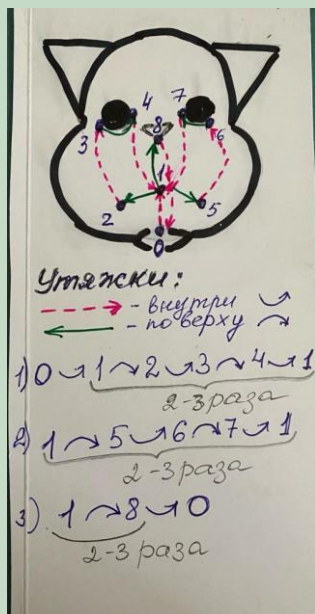 4 7
3 8 6
1
2 5
0
Утяжки:
- внутри
- поверху
1) 0 ⤻ 1 ⤳ 2 ⤻ 3 ⤳ 4 ⤻ 1
2-3 раза
2) 1 ⤳ 5 ⤻ 6 ⤳ 7 ⤻ 1
2-3 раза
3) 1 ⤳ 8 ⤻ 0
2-3 раза